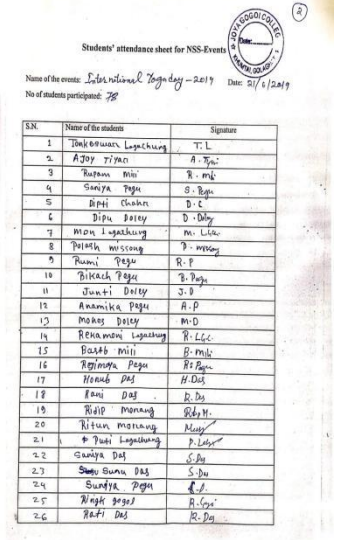 2
JOYA GOGOI COLLEGE
Date:
KHUMTAI, GOLAGHAT
Students' attendance sheet for NSS-Events
Name of the events: International Yoga day - 2019 Date: 21/6/2019
No of students participated: 78
S.N. Name of the students Signature
1 Tonkeswar Lagachung T.L
2 AJoy Tiyari A. Tyari
3 Rupam mili R. mili
4 Saniya Pegu S. Pegu
5 Dipti Chahn D.C
6 Dipu Doley D. Doley
7 Mon Lagachung M. LGC
8 Polash missong P. missong
9 Rumi Pegu R.P
10 Bikach Pegu B. Pegu
11 Junti Doley J.D
12 Anamika Pegu A.P
13 Mones Doley M.D
14 Rekamoni Lagachung R. LGC.
15 Basab mili B. mili
16 Regimoya Pegu Pegu
17 Honub Das H.Das
18 Rani Das R. Das
19 Ridip monang
20 Ritun monang
21 Puti Lagachung
22 Saniya Das S.Das
23 Sunu Das S.Das
24 Suniya Pegu S.P.
25 Ringk gogoi R. Gogoi
26 Rati Das R. Das